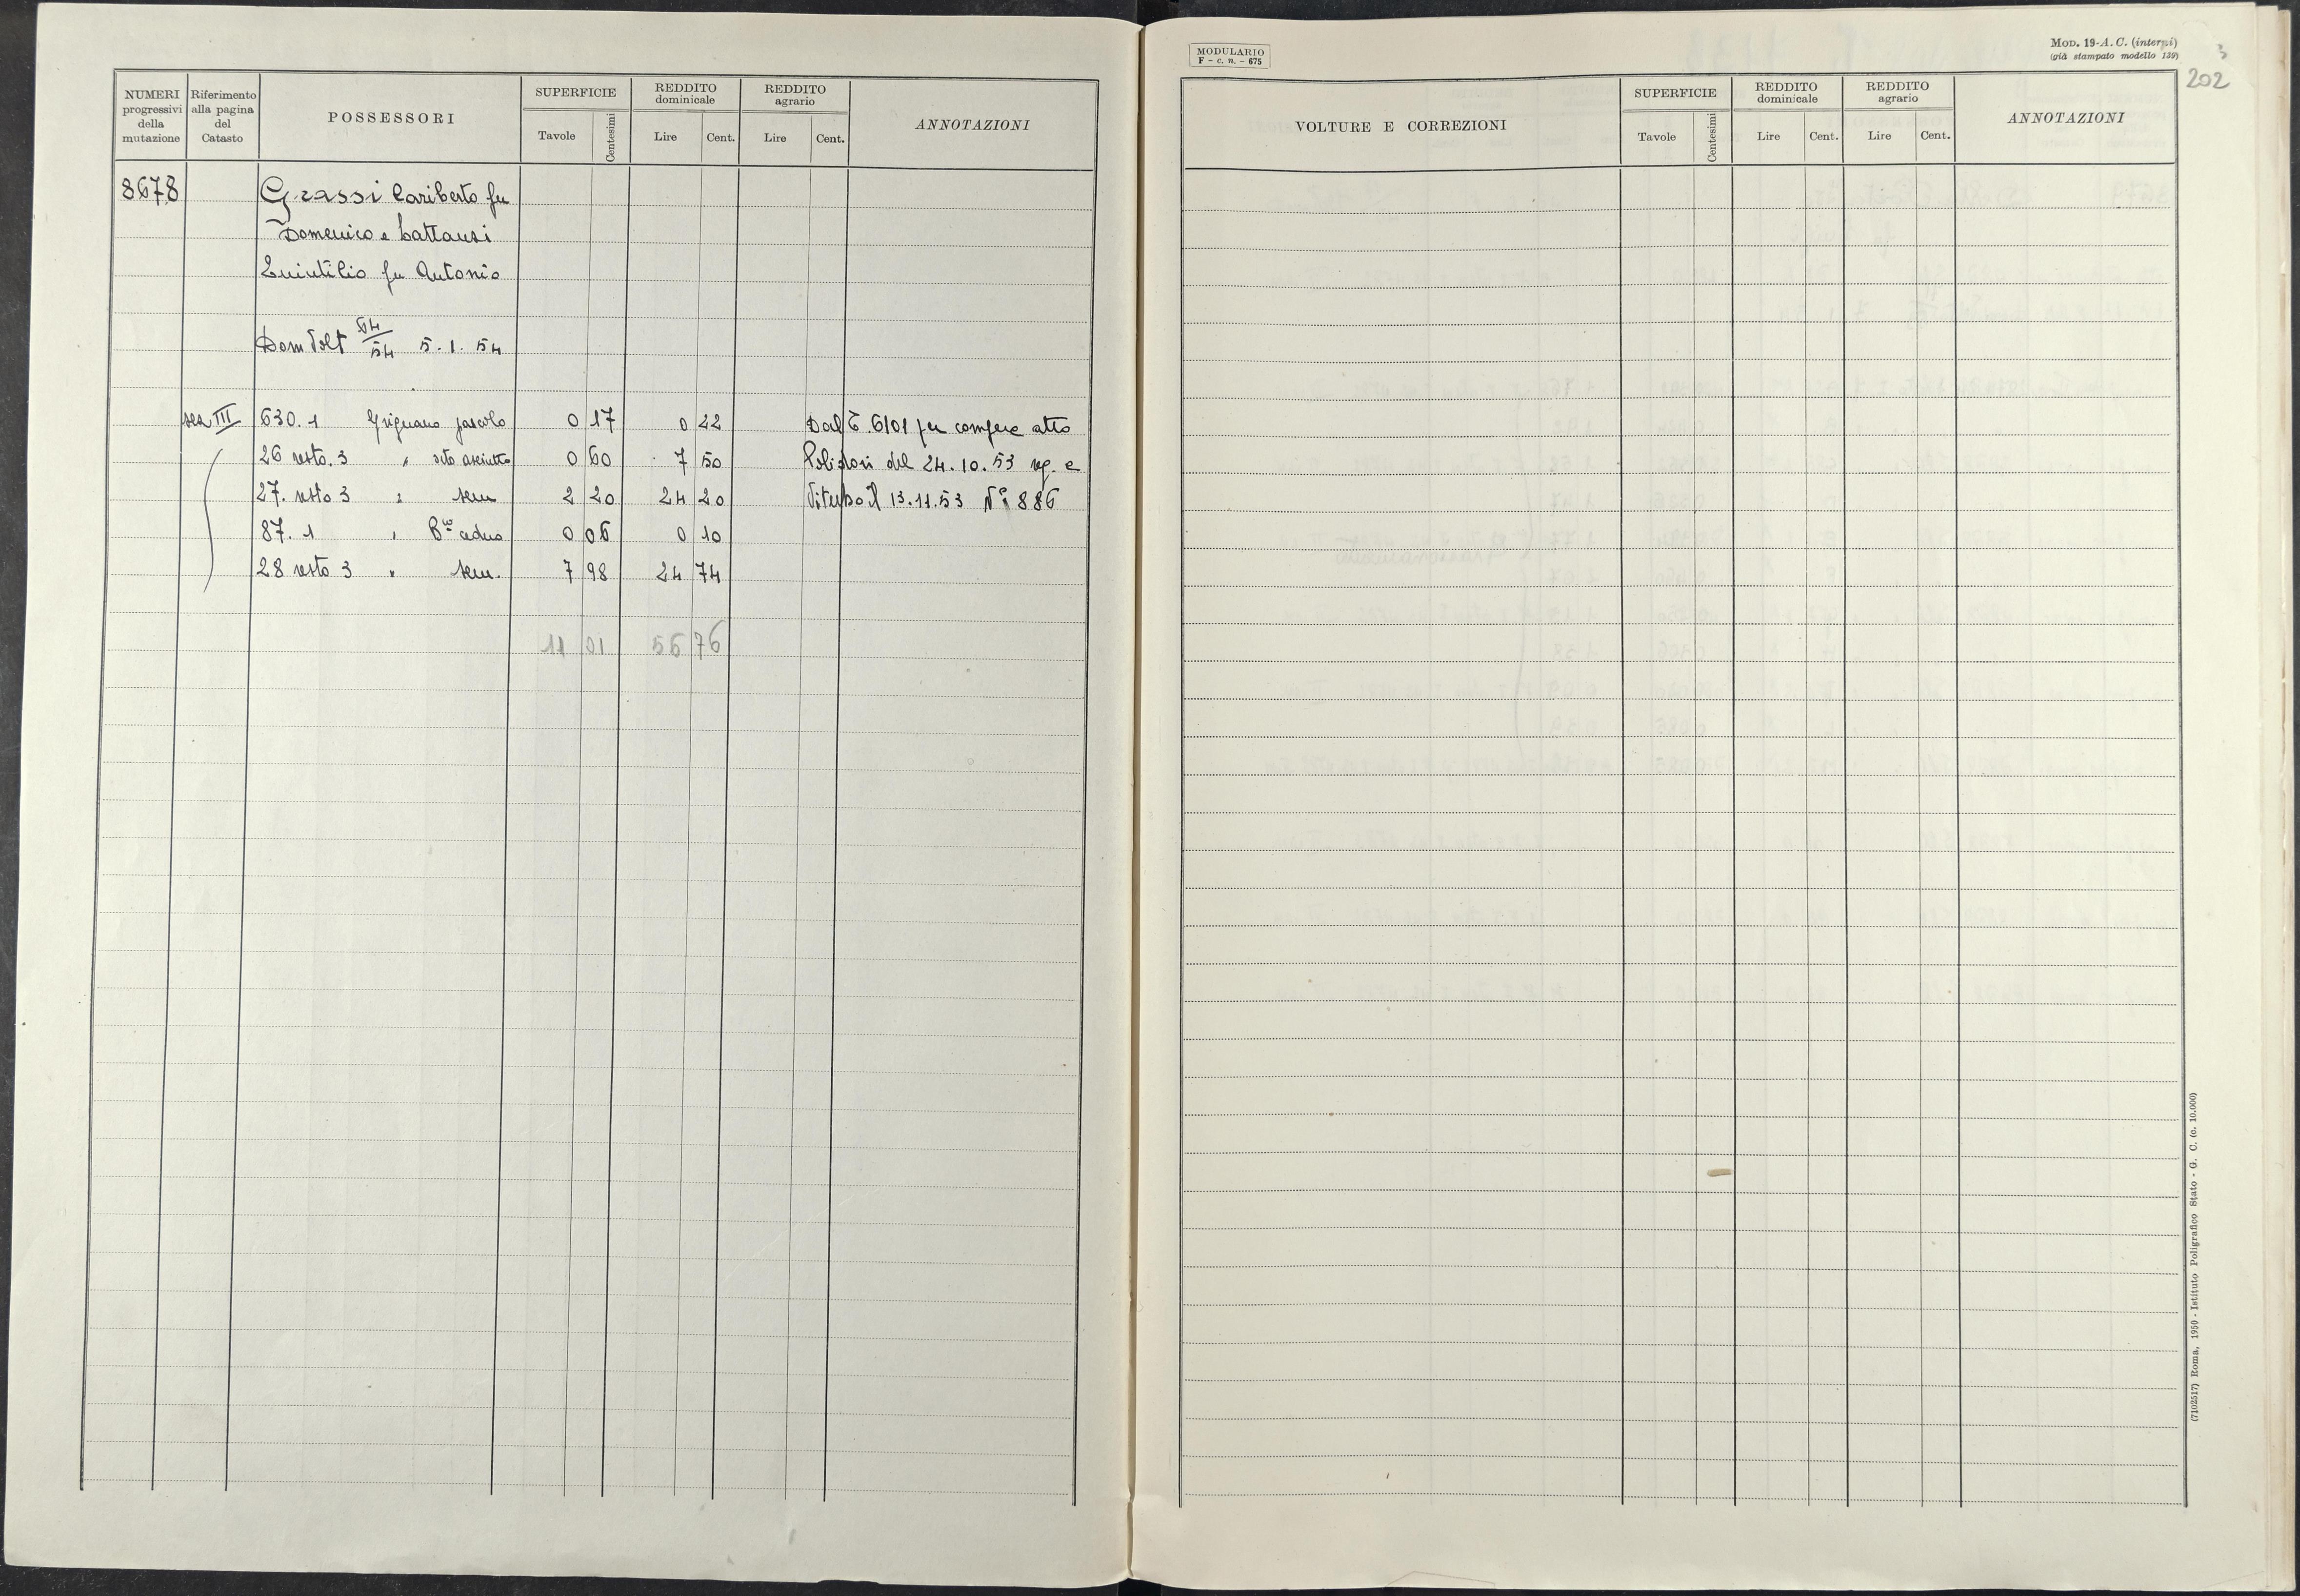 NUMERI progressivi della mutazione
Riferimento alla pagina del Catasto
POSSESSORI
SUPERFICIE
Tavole
Centesimi
REDDITO dominicale
Lire
Cent.
REDDITO agrario
Lire
Cent.
ANNOTAZIONI
8678
Grassi Cariberto fu
Domenico e Cattansi
Quintilio fu Antonio
Dom Volt 64/54 5.1.54
sez III 630.1 Grignano pascolo 0 17 0 22 Dal C. 6101 per compera atto
26 resto. 3 " orto asciutto 0 60 7 50 Polidori del 24.10.53 reg. a
27. resto 3 " sem 2 20 24 20 Viterbo il 13.11.53 N° 886
87. 1 " Bco ceduo 0 06 0 10
28 resto 3 " sem. 7 98 24 74
11 01 56 76
MODULARIO
F - c. n. - 675
MOD. 19-A. C. (interni)
(già stampato modello 139)
3
202
VOLTURE E CORREZIONI
SUPERFICIE
Tavole
Centesimi
REDDITO dominicale
Lire
Cent.
REDDITO agrario
Lire
Cent.
ANNOTAZIONI
(7102517) Roma, 1950 - Istituto Poligrafico Stato - G. C. (c. 10.000)